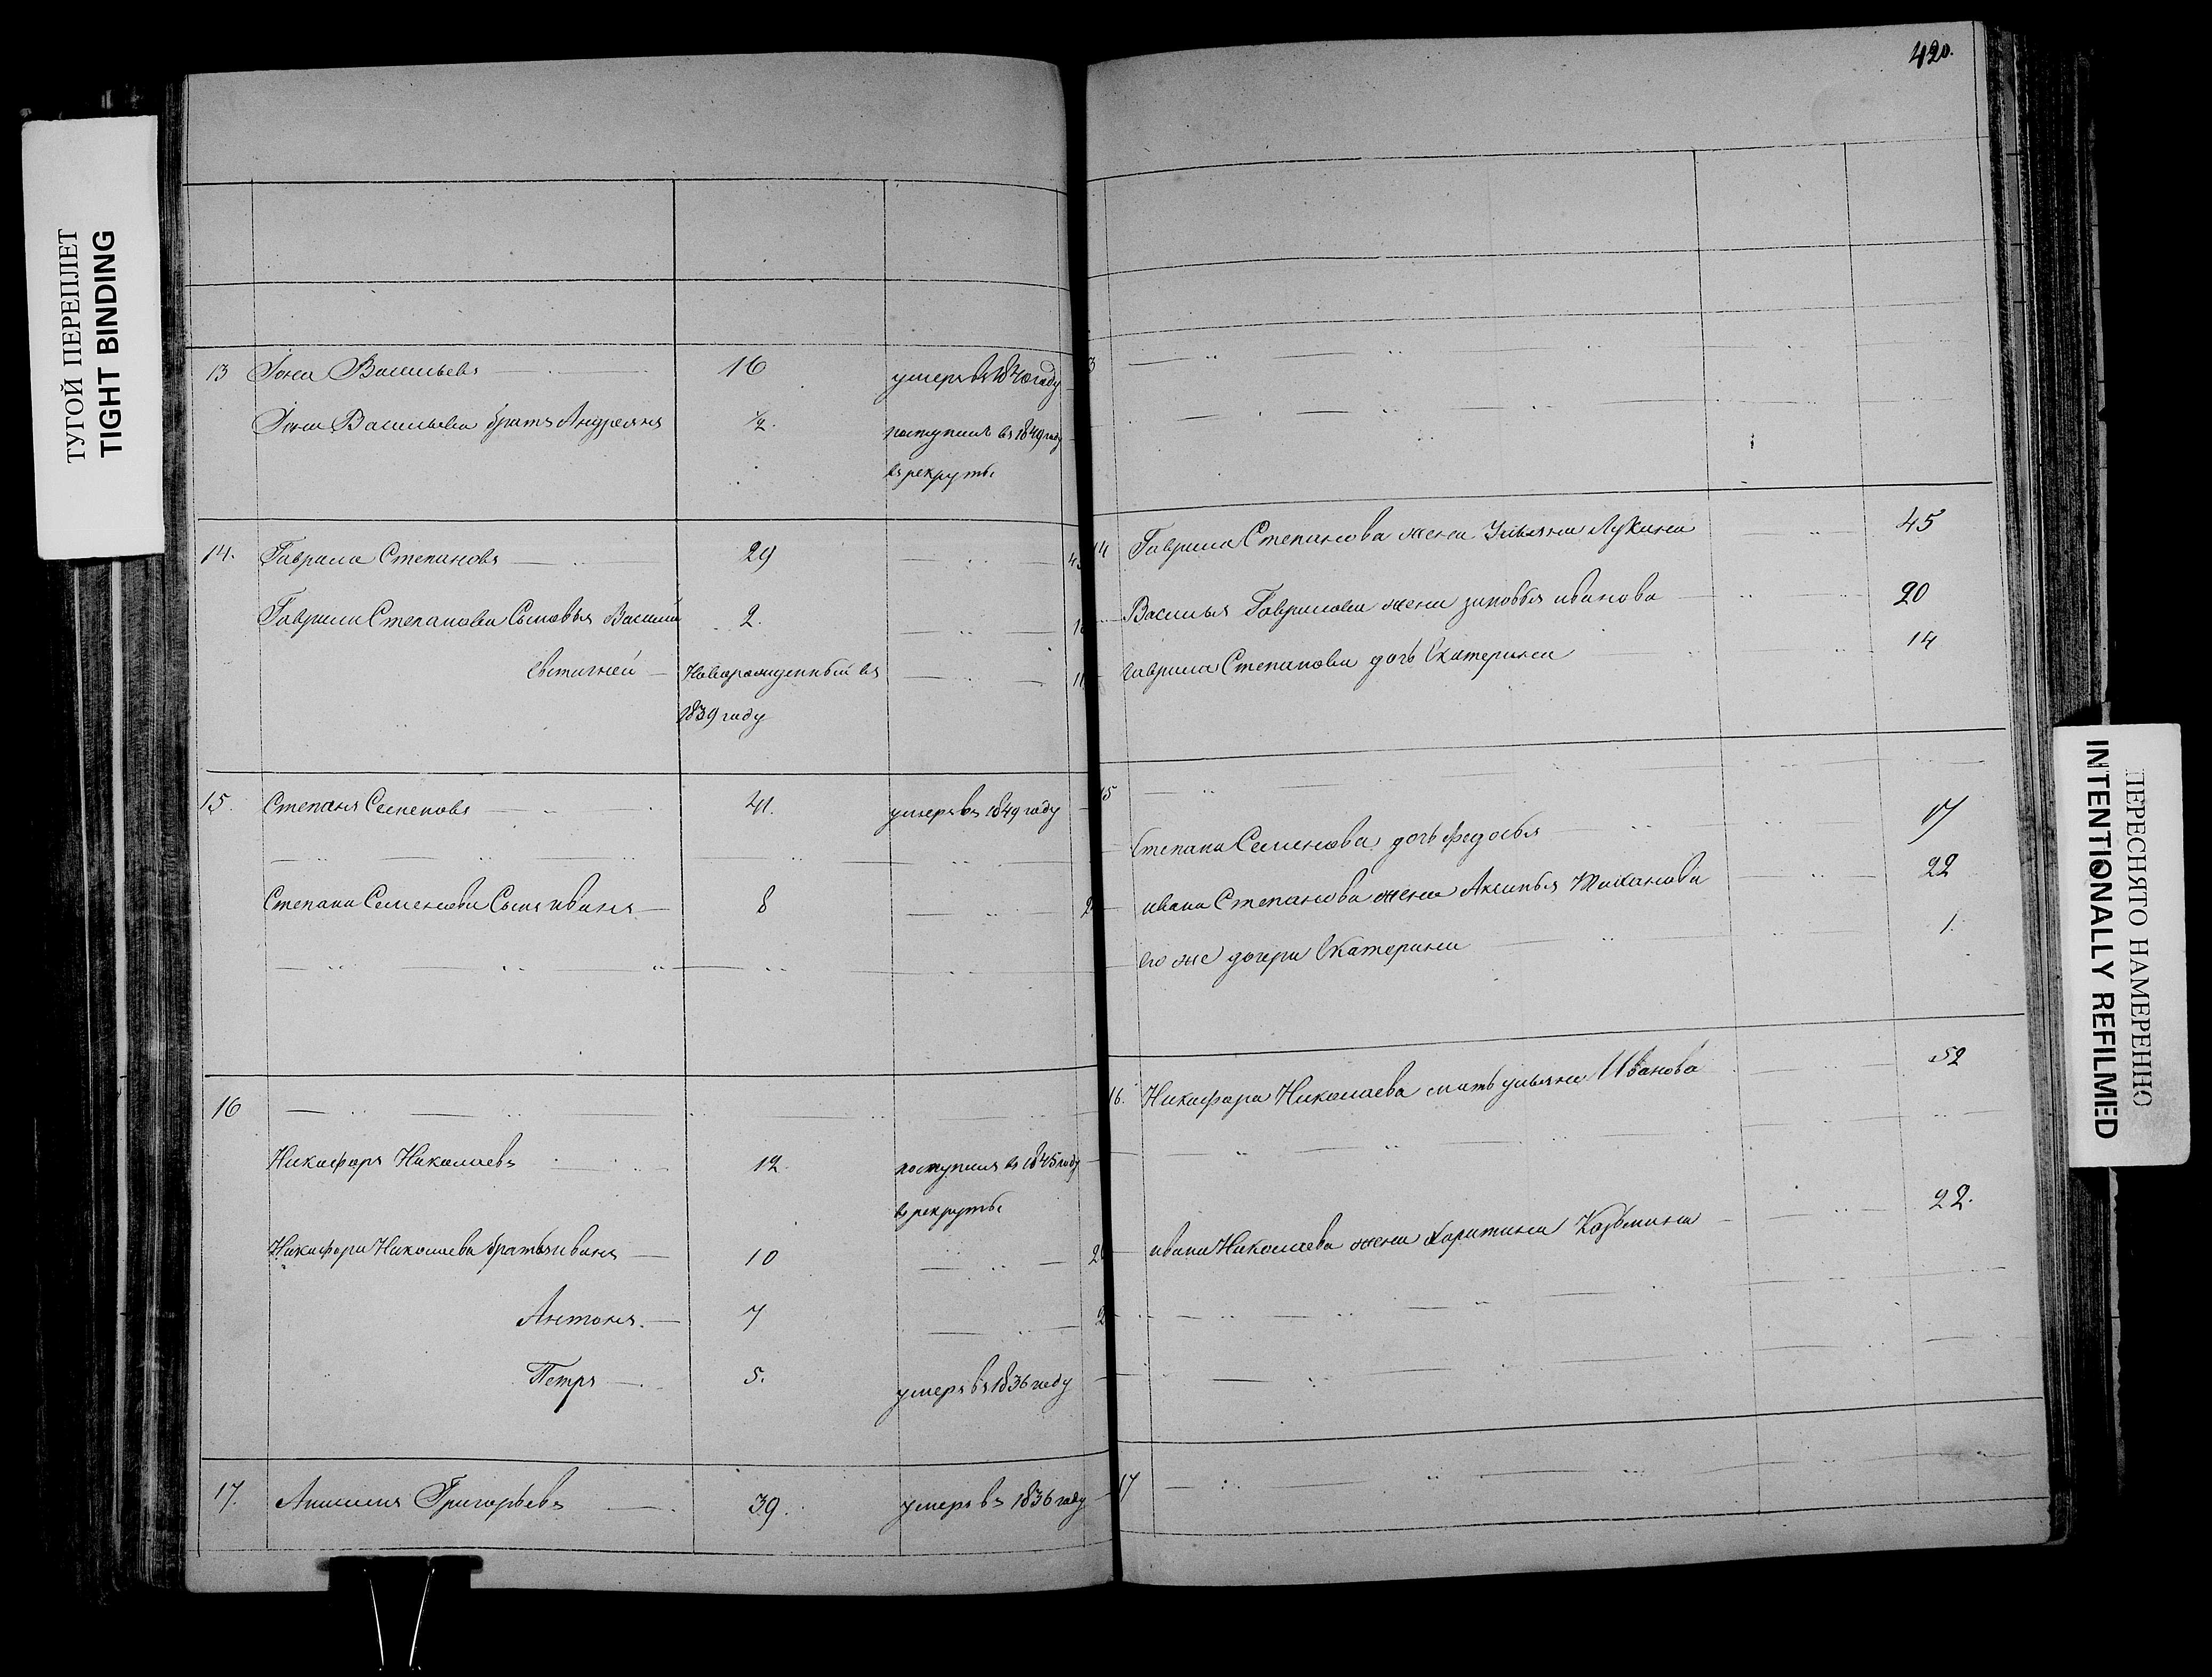 420.
ТУГОЙ ПЕРЕПЛЕТ
TIGHT BINDING
13 Іона Васильевъ 16 умеръ въ 1840 году
Іона Васильева братъ Андреянъ ½. поступилъ въ 1849 году
въ рекруты
14. Гаврила Степановъ 29
Гаврилы Степанова Сыновья Василий 2.
Евтигней Новорожденный въ
1839 году
15. Степанъ Семеновъ 41. умеръ въ 1849 году
Степана Семенова Сынъ иванъ 8
16
Никифоръ Николаевъ 12. поступилъ въ 1845 году
въ рекруты
Никифора Николаева братья иванъ 10
Антонъ. 7
Петръ 5. умеръ въ 1836 году
17. Григорьевъ 39. умеръ въ 1836 году
3
14 Гаврила Степанова жена Ульяна Лукина 45
Василья Гаврилова жена зиновья иванова 20
гаврила Степанова дочь Екатерина 14
15
Степана Семенова дочь федосья 17
ивана Степанова жена Аксинья Тиханова 22
его же дочери Екатерина 1.
16. Никифора Николаева мать ульяна Иванова 52
ивана Николаева жена харитина Козьмина 22.
17
ПЕРЕСНЯТО НАМЕРЕННО
INTENTIONALLY REFILMED